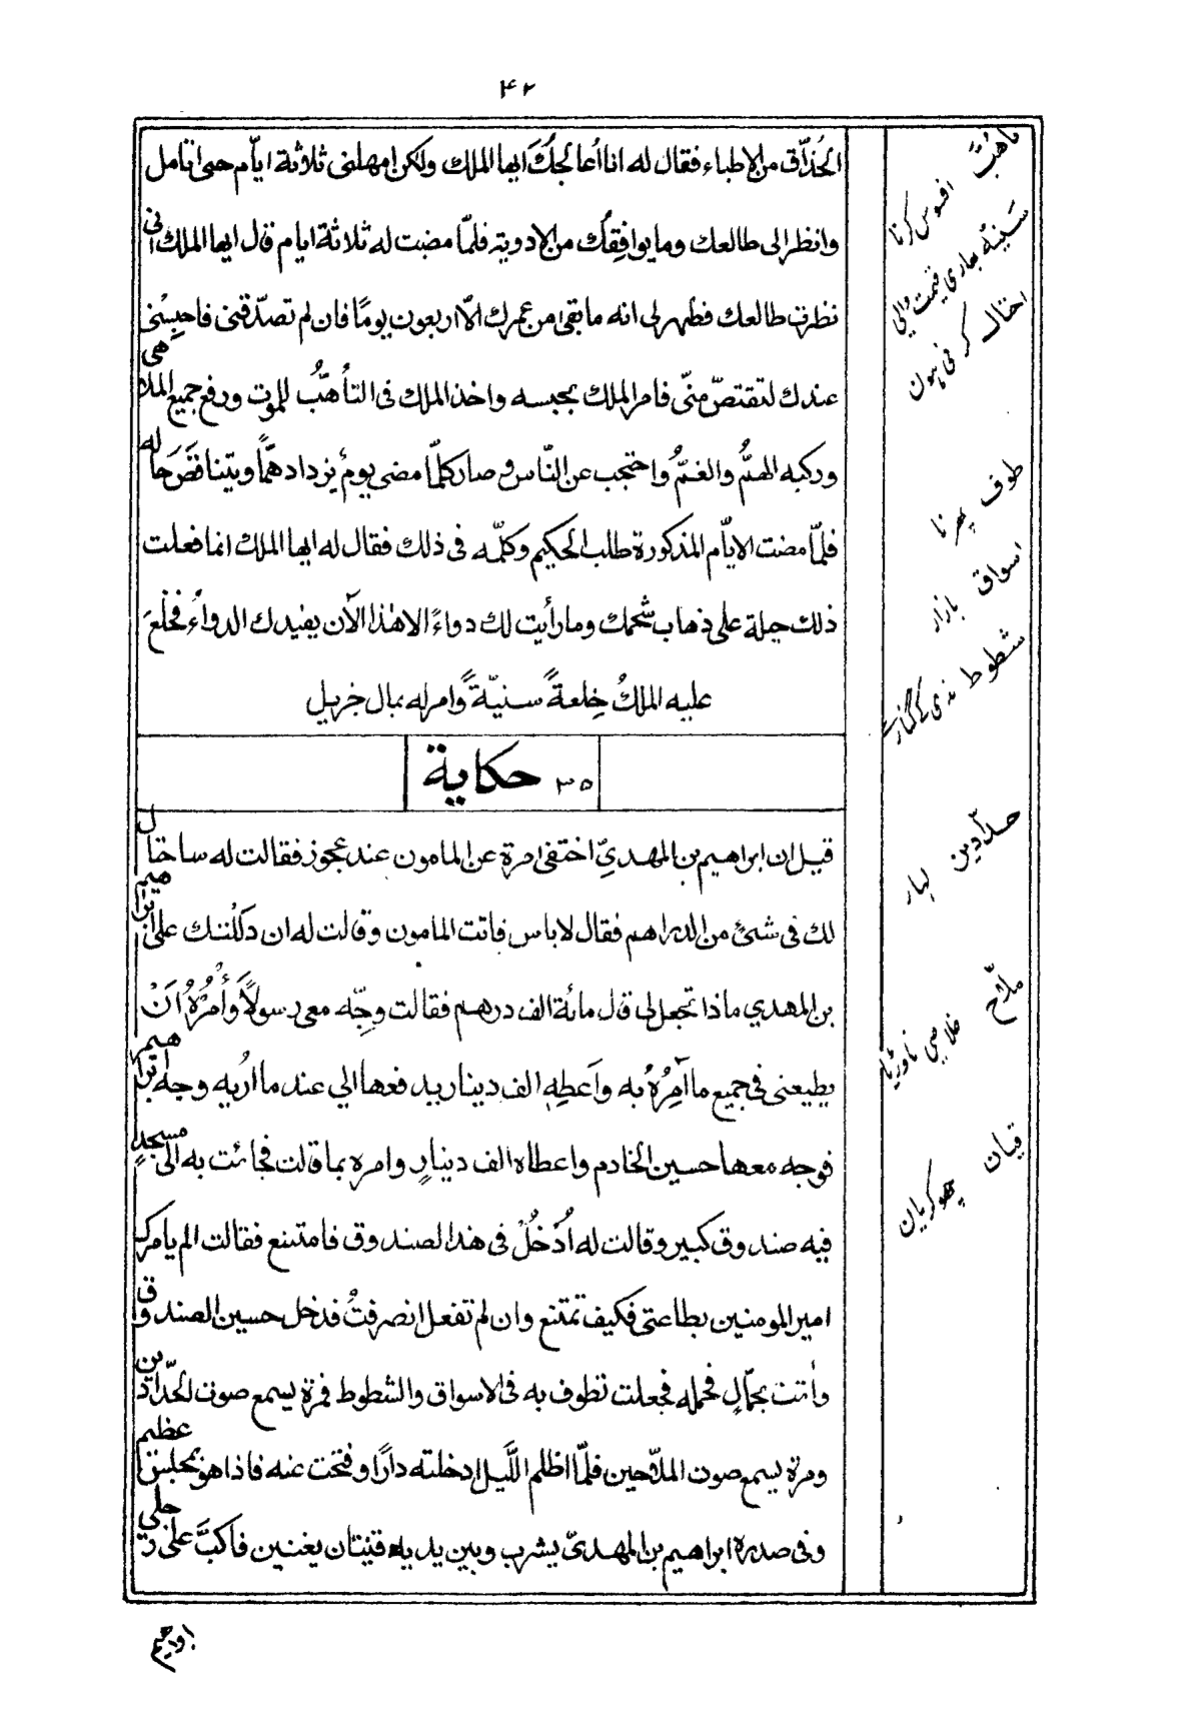 ۴۲
الحُذّاق من الاطباء فقال له انا اُعالجكَ ايها الملك ولكن امهلنى ثلاثة ايّام حتى اتامل
وانظر الى طالعك وما يوافِقُك من الادوية فلمّا مضت له ثلاثة ايام قال ايها الملك انى
نظرت طالعك فظهر لى انه ما بقى من عمرك الّا اربعون يومًا فان لم تصدّقنى فاحبِسْنى
عندك لتقتصّ منّى فامر الملك بحبسه واخذ الملك فى التأهُّب للموت ورفع جميع الملاهى
وركبه الهمُّ والغمُّ واحتجب عن النّاس وصار كلمّا مضى يومٌ يزداد همًّا ويتناقَصَ حاله
فلمّا مضت الايّام المذكورة طلب الحكيم وكلمّه فى ذلك فقال له ايها الملك انما فعلت
ذلك حيلة على ذهاب شحمك وما رأيت لك دواءً الا هٰذا الآن يفيدك الدواءُ فخلَعَ
عليه الملكُ خِلعةً سنيّةً وامر له بمال جزيل
حكاية ۳۵
قيل ان ابراهيم بن المهدىّ اختفى مرة عن المامون عند عجوز فقالت له ساحتال
لك فى شئٍ من الدراهم فقال لا باس فاتت المامون وقالت له ان دَلَلْتك على ابراهيم
بن المهدي ماذا تجعل لى قال مائة الف درهم فقالت وجِّه معى رسولًا وأْمُرْهُ اَنْ
يطيعنى فى جميع ما آمِرُهُ به واَعطِهِ الف دينار يدفعها الي عند ما اُريه وجه ابراهيم
فوجه معها حسين الخادم واعطاه الف دينارٍ وامره بما قالت فجائت به الى مسجدٍ
فيه صندوق كبير وقالت له اُدْخُلْ فى هذا الصندوق فامتنع فقالت الم يامرك
امير المومنين بطاعتى فكيف تمتنع وان لم تفعل انصرفتُ فدخل حسين الصندوق
واتت بحمّالٍ فحمله فجعلت تطوف به فى الاسواق والشطوط فمرة يسمع صوت الحدّادين
ومرة يسمع صوت الملّاحين فلمّا اظلم اللَّيل ادخلته دارًا وفتحت عنه فاذا هو بمجلس عظيم
وفى صدره ابراهيم بن المهدىّ يشرب وبين يديه قينتان يغنين فاكبَّ على رجلي
تاهُبَّ افسوس کرنا
سَنِیّہ بھاری قیمت والی
احتال کرفی ہون
طوف پھرنا
اسواق بازار
شطوط ندی کے کنارے
حدّادین لہار
ملّاح خلاصی ناورٹیا
قیان چھوکریان
ابراهيم